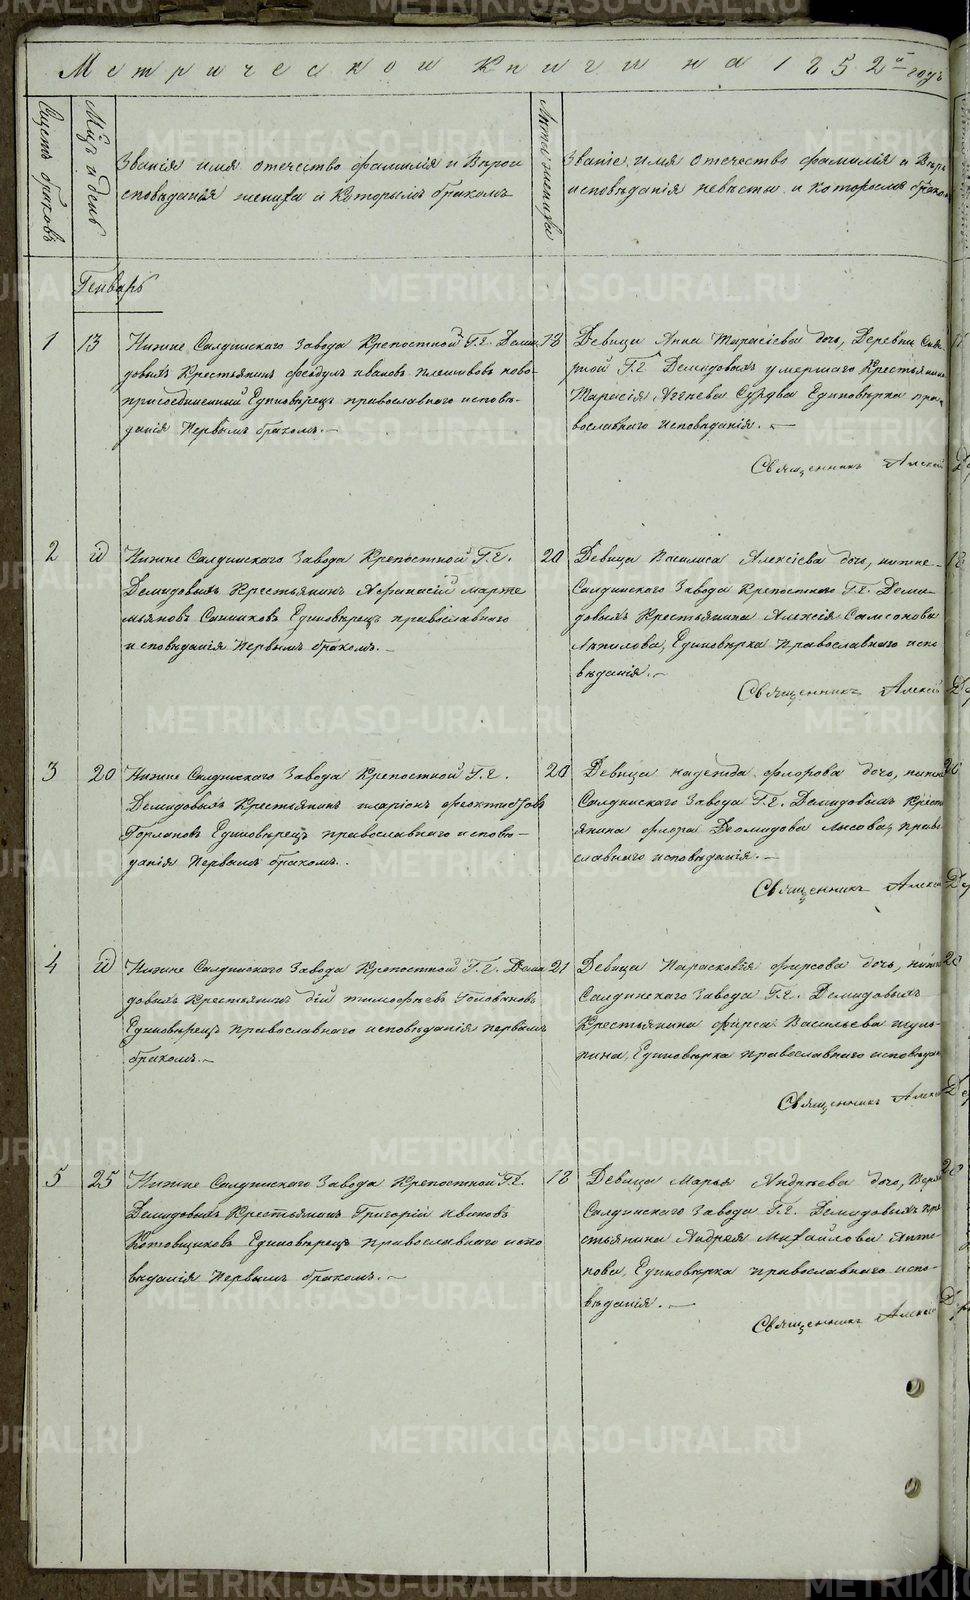 Метрической Книги на 1852й годъ
Счетъ браковъ
Мцъ и день
Званія имя отечество фамилія и Верои
споведанія жениха и Которымъ бракомъ
Лета жениха
Званіе, имя отечество фамилія и Веро
исповеданія невесты и Которымъ браком
Генварь
1
13
Нижне Салдинскаго Завода Крепостной Г.г. Деми
довыхъ Крестьянинъ Феодулъ Ивановъ Плешковъ ново-
присоединенный Единоверецъ православнаго испове-
данія Первымъ бракомъ.
18
Девица Анна Тарасіева дочь, Деревни Север
ной Г.г. Демидовыхъ умершаго Крестьянина
Тарасія Единоверка пра
вославнаго исповеданія.
Священникъ Алексей
2
й
Нижне Салдинскаго Завода Крепостной Г.г.
Демидовыхъ Крестьянинъ Афанасій Марте
мьяновъ Единоверецъ православнаго
исповеданія Первымъ бракомъ.
20
Девица Василиса Алексіева дочь, нижне-
Салдинскаго Завода Крепостнаго Г.г. Деми-
довыхъ Крестьянина Алексія Самсонова
Единоверка Православнаго испо
веданія.
Священникъ Алексей
3
20
Нижне Салдинскаго Завода Крепостной Г.г.
Демидовыхъ Крестьянинъ иларіонъ Феоктистовъ
Горлановъ Единоверецъ православнаго испове-
данія Первымъ бракомъ.
20
Девица надежда Флорова дочь, нижне
Салдинскаго Завода Г.г. Демидовыхъ Крест
янина Флора Диомидова Лисова, право
славнаго исповеданія.
Священникъ Алексей
4
й
Нижне Салдинскаго Завода Крепостной Г.г. Деми
довыхъ Крестьянинъ дій тимофеевъ Головановъ
Единоверецъ православнаго исповеданія первымъ
бракомъ.
21
Девица Парасковія Фирсова дочь, нижне
Салдинскаго Завода Г.г. Демидовыхъ
Крестьянина Фирса Васильева шуль-
гина, Единоверка православнаго исповедан
Священникъ Алексей
5
25
Нижне Салдинскаго Завода Крепостной Г.г.
Демидовыхъ Крестьянинъ Григорій Ивановъ
Единоверецъ Православнаго испо
веданія Первымъ бракомъ.
18
Девица Марья Андреева дочь, Верхне
Салдинскаго Завода Г.г. Демидовыхъ кре
стьянина Андрея Михайлова Анти-
пова, Единоверка православнаго испо-
веданія.
Священникъ Алексей
METRIKI.GASO-URAL.RU